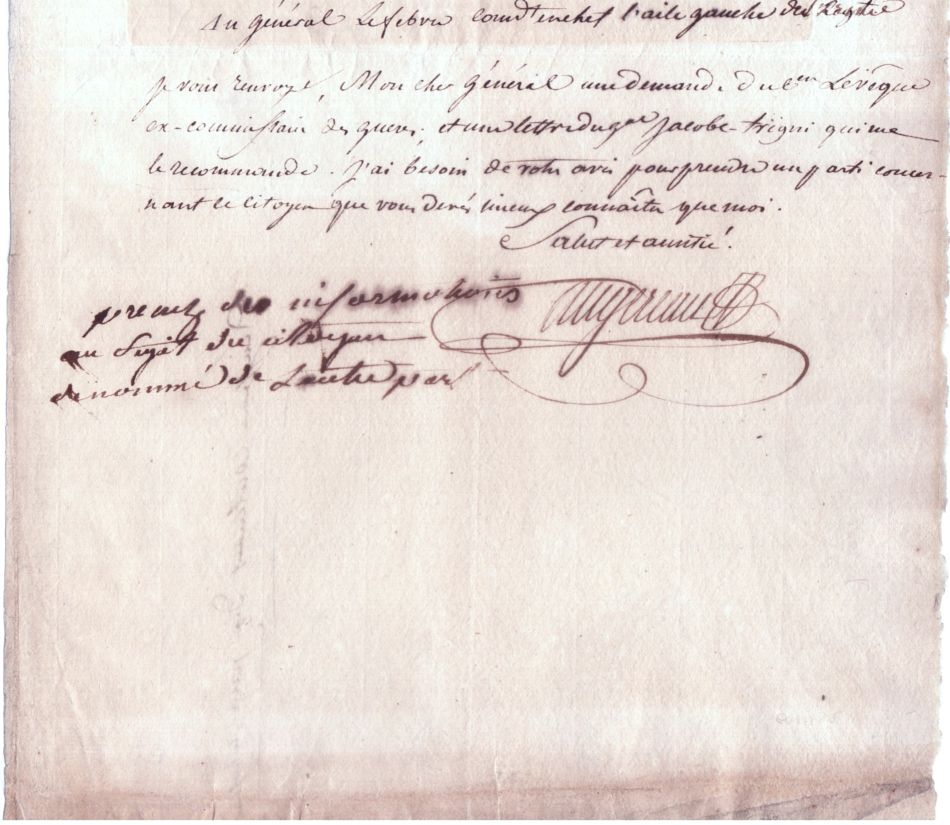 Au général Lefebvre comdt en chef l'aile gauche de l'armée
je vous renvoye, Mon cher Général une demande du Cen Levêque
ex-commissaire des guerres, et une lettre du gal Jacobé-trigni qui me
le recommande. J'ai besoin de votre avis pour prendre un parti concer-
nant ce Citoyen que vous devés mieux connaître que moi.
Salut et amitié.
Augereau
prenez des informations
au sujet du citoyen
denommé de Lautre part